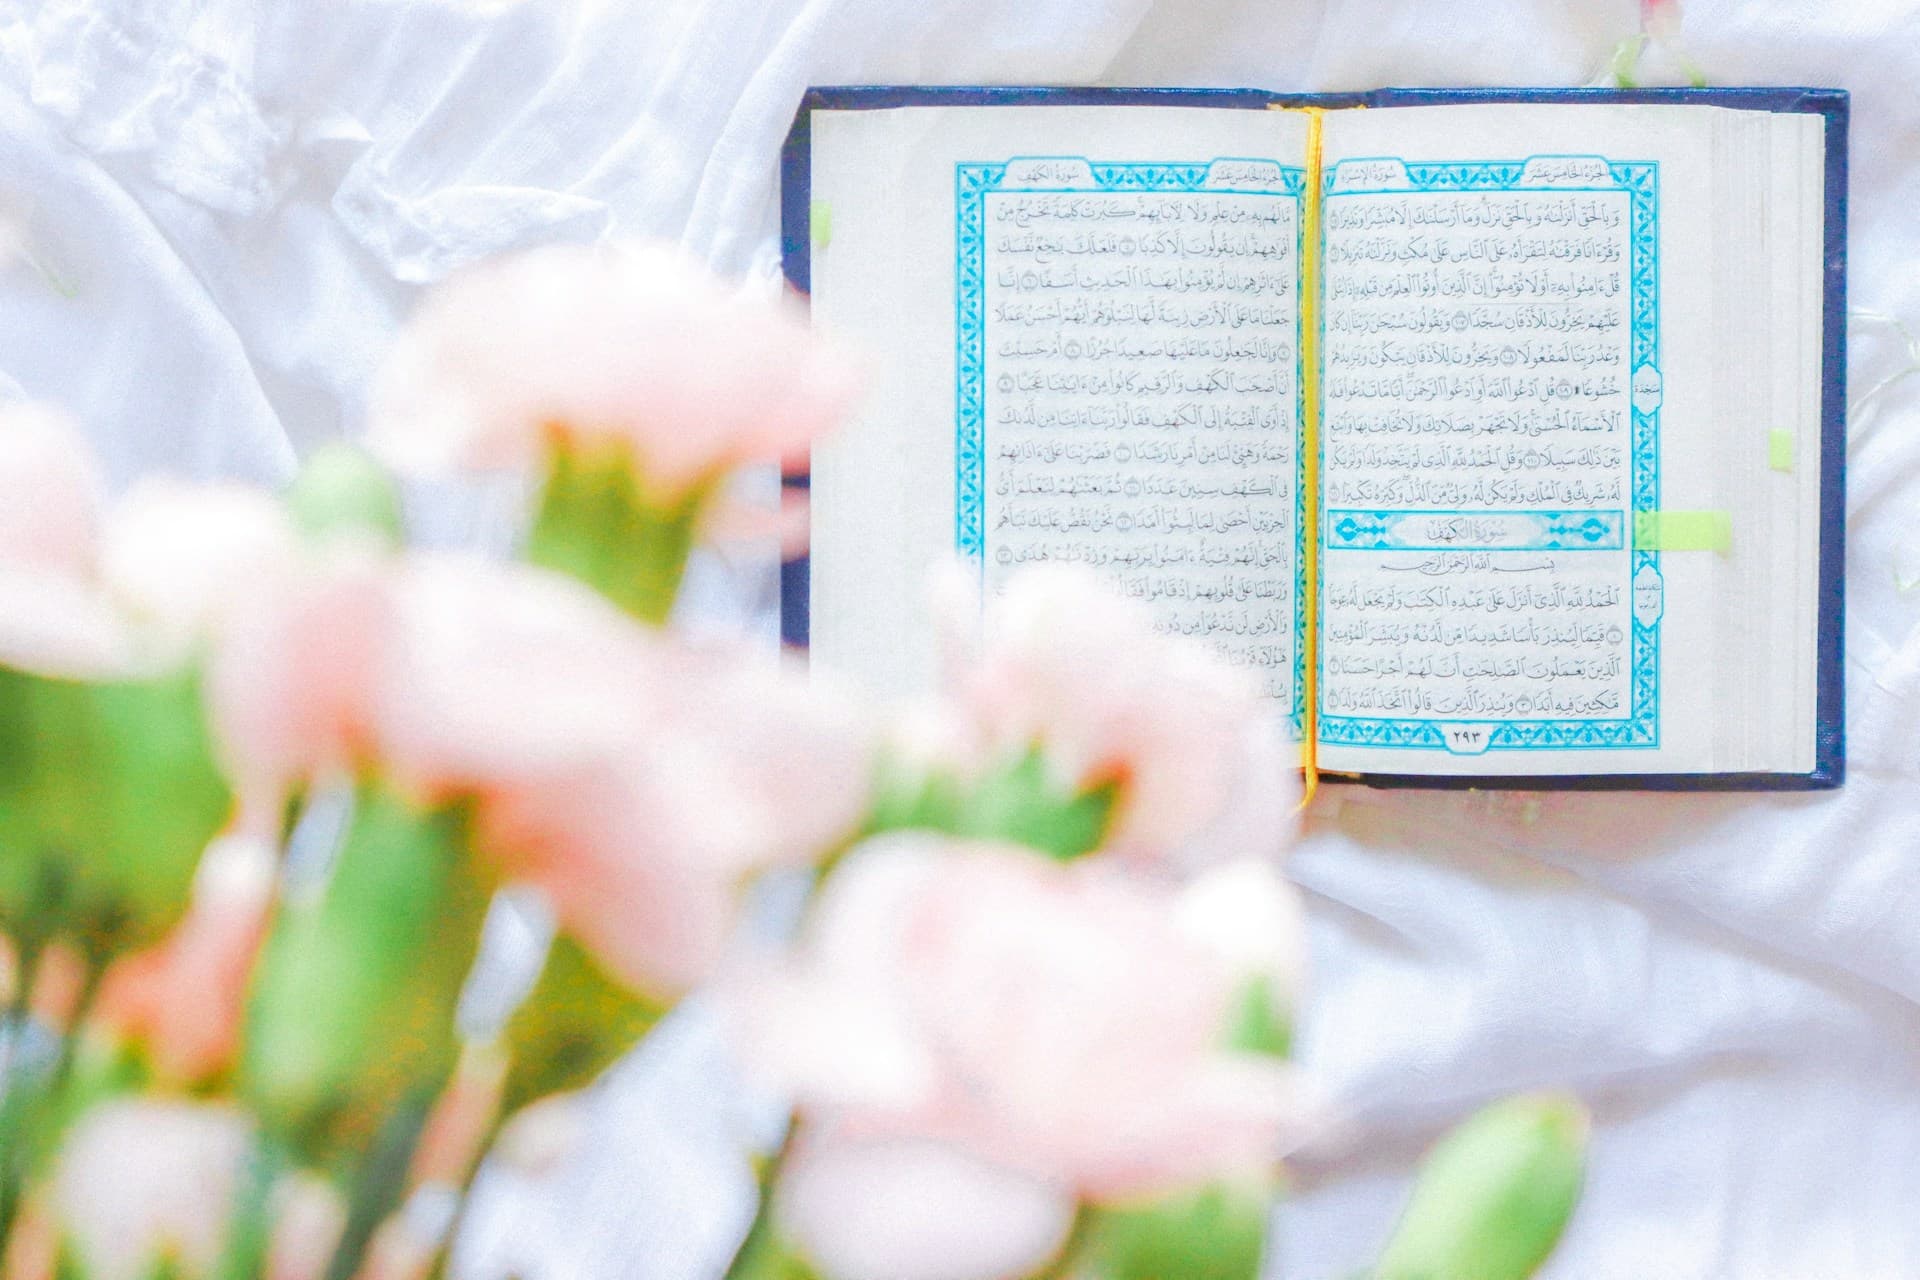 الجزء الخامس عشر
سورة الإسراء
وَبِالْحَقِّ أَنزَلْنَٰهُ وَبِالْحَقِّ نَزَلَ وَمَا أَرْسَلْنَٰكَ إِلَّا مُبَشِّرًا وَنَذِيرًا ١٠٥
وَقُرْءَانًا فَرَقْنَٰهُ لِتَقْرَأَهُۥ عَلَى النَّاسِ عَلَىٰ مُكْثٍ وَنَزَّلْنَٰهُ تَنزِيلًا ١٠٦
قُلْ ءَامِنُوا بِهِۦٓ أَوْ لَا تُؤْمِنُوٓا إِنَّ الَّذِينَ أُوتُوا الْعِلْمَ مِن قَبْلِهِۦٓ إِذَا يُتْلَىٰ
عَلَيْهِمْ يَخِرُّونَ لِلْأَذْقَانِ سُجَّدًا ١٠٧ وَيَقُولُونَ سُبْحَٰنَ رَبِّنَآ إِن كَانَ
وَعْدُ رَبِّنَا لَمَفْعُولًا ١٠٨ وَيَخِرُّونَ لِلْأَذْقَانِ يَبْكُونَ وَيَزِيدُهُمْ
خُشُوعًا ۩ ١٠٩ قُلِ ادْعُوا اللَّهَ أَوِ ادْعُوا الرَّحْمَٰنَ أَيًّا مَّا تَدْعُوا فَلَهُ
الْأَسْمَآءُ الْحُسْنَىٰ وَلَا تَجْهَرْ بِصَلَاتِكَ وَلَا تُخَافِتْ بِهَا وَابْتَغِ
بَيْنَ ذَٰلِكَ سَبِيلًا ١١٠ وَقُلِ الْحَمْدُ لِلَّهِ الَّذِى لَمْ يَتَّخِذْ وَلَدًا وَلَمْ يَكُن
لَّهُۥ شَرِيكٌ فِى الْمُلْكِ وَلَمْ يَكُن لَّهُۥ وَلِىٌّ مِّنَ الذُّلِّ وَكَبِّرْهُ تَكْبِيرًا ١١١
سورة الكهف
بِسْمِ اللَّهِ الرَّحْمَٰنِ الرَّحِيمِ
الْحَمْدُ لِلَّهِ الَّذِىٓ أَنزَلَ عَلَىٰ عَبْدِهِ الْكِتَٰبَ وَلَمْ يَجْعَل لَّهُۥ عِوَجًا
١ قَيِّمًا لِّيُنذِرَ بَأْسًا شَدِيدًا مِّن لَّدُنْهُ وَيُبَشِّرَ الْمُؤْمِنِينَ
الَّذِينَ يَعْمَلُونَ الصَّٰلِحَٰتِ أَنَّ لَهُمْ أَجْرًا حَسَنًا ٢
مَّٰكِثِينَ فِيهِ أَبَدًا ٣ وَيُنذِرَ الَّذِينَ قَالُوا اتَّخَذَ اللَّهُ وَلَدًا ٤
سجدة
٢٩٣
الجزء الخامس عشر
سورة الكهف
مَّا لَهُم بِهِۦ مِنْ عِلْمٍ وَلَا لِءَابَآئِهِمْ كَبُرَتْ كَلِمَةً تَخْرُجُ مِنْ
أَفْوَٰهِهِمْ إِن يَقُولُونَ إِلَّا كَذِبًا ٥ فَلَعَلَّكَ بَٰخِعٌ نَّفْسَكَ
عَلَىٰٓ ءَاثَٰرِهِمْ إِن لَّمْ يُؤْمِنُوا بِهَٰذَا الْحَدِيثِ أَسَفًا ٦ إِنَّا
جَعَلْنَا مَا عَلَى الْأَرْضِ زِينَةً لَّهَا لِنَبْلُوَهُمْ أَيُّهُمْ أَحْسَنُ عَمَلًا
٧ وَإِنَّا لَجَٰعِلُونَ مَا عَلَيْهَا صَعِيدًا جُرُزًا ٨ أَمْ حَسِبْتَ
أَنَّ أَصْحَٰبَ الْكَهْفِ وَالرَّقِيمِ كَانُوا مِنْ ءَايَٰتِنَا عَجَبًا ٩
إِذْ أَوَى الْفِتْيَةُ إِلَى الْكَهْفِ فَقَالُوا رَبَّنَآ ءَاتِنَا مِن لَّدُنكَ
رَحْمَةً وَهَيِّئْ لَنَا مِنْ أَمْرِنَا رَشَدًا ١٠ فَضَرَبْنَا عَلَىٰٓ ءَاذَانِهِمْ
فِى الْكَهْفِ سِنِينَ عَدَدًا ١١ ثُمَّ بَعَثْنَٰهُمْ لِنَعْلَمَ أَىُّ
الْحِزْبَيْنِ أَحْصَىٰ لِمَا لَبِثُوٓا أَمَدًا ١٢ نَّحْنُ نَقُصُّ عَلَيْكَ نَبَأَهُم
بِالْحَقِّ إِنَّهُمْ فِتْيَةٌ ءَامَنُوا بِرَبِّهِمْ وَزِدْنَٰهُمْ هُدًى ١٣
وَرَبَطْنَا عَلَىٰ قُلُوبِهِمْ إِذْ قَامُوا فَقَالُوا
وَالْأَرْضِ لَن نَّدْعُوَا مِن دُونِهِ
هَٰٓؤُلَآءِ قَوْمُنَا